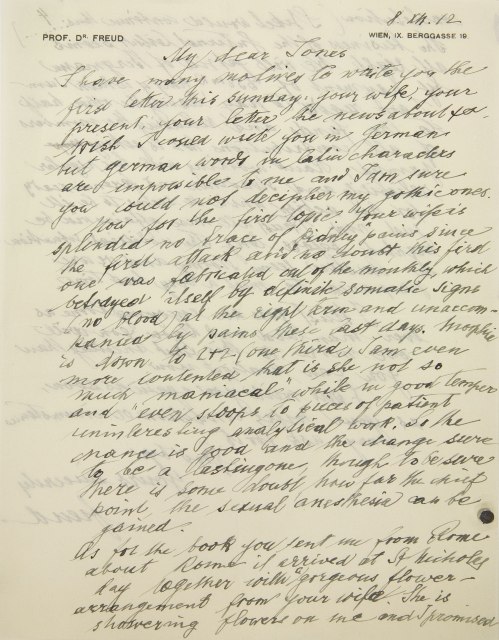 8. XII. 12
PROF. DR. FREUD
WIEN, IX. BERGGASSE 19.
My dear Jones
I have many motives to write you the
first letter this sunday: your wife, your
present, your letter the news about
Wish I could write you in German
but german words in latin characters
are impossible to me and I am sure
you could not decipher my gothic ones.
Now for the first topic. Your wife is
splendid, no trace of "kidney" pains since
the first attack and no doubt this first
one was fabricated out of the monthly, which
betrayed itself by definite somatic signs
no blood) at the right time and unaccom-
panied by pains these last days. Morphia
is down to (one third). I am even
more contented that is she not so
much "maniacal" while in good temper
and "even stoops to pieces of patient
uninteresting analytical work. So the
chance is good and the change sure
to be a lasting one, though to be sure
there is some doubt how far the chief
point, the sexual anesthesia can be
gained.
As for the book you sent me from Rome
about Rome it arrived at St Nicholas
day together with "gorgeous flower-
arrangement from your wife. She is
showering flowers on me and I promised